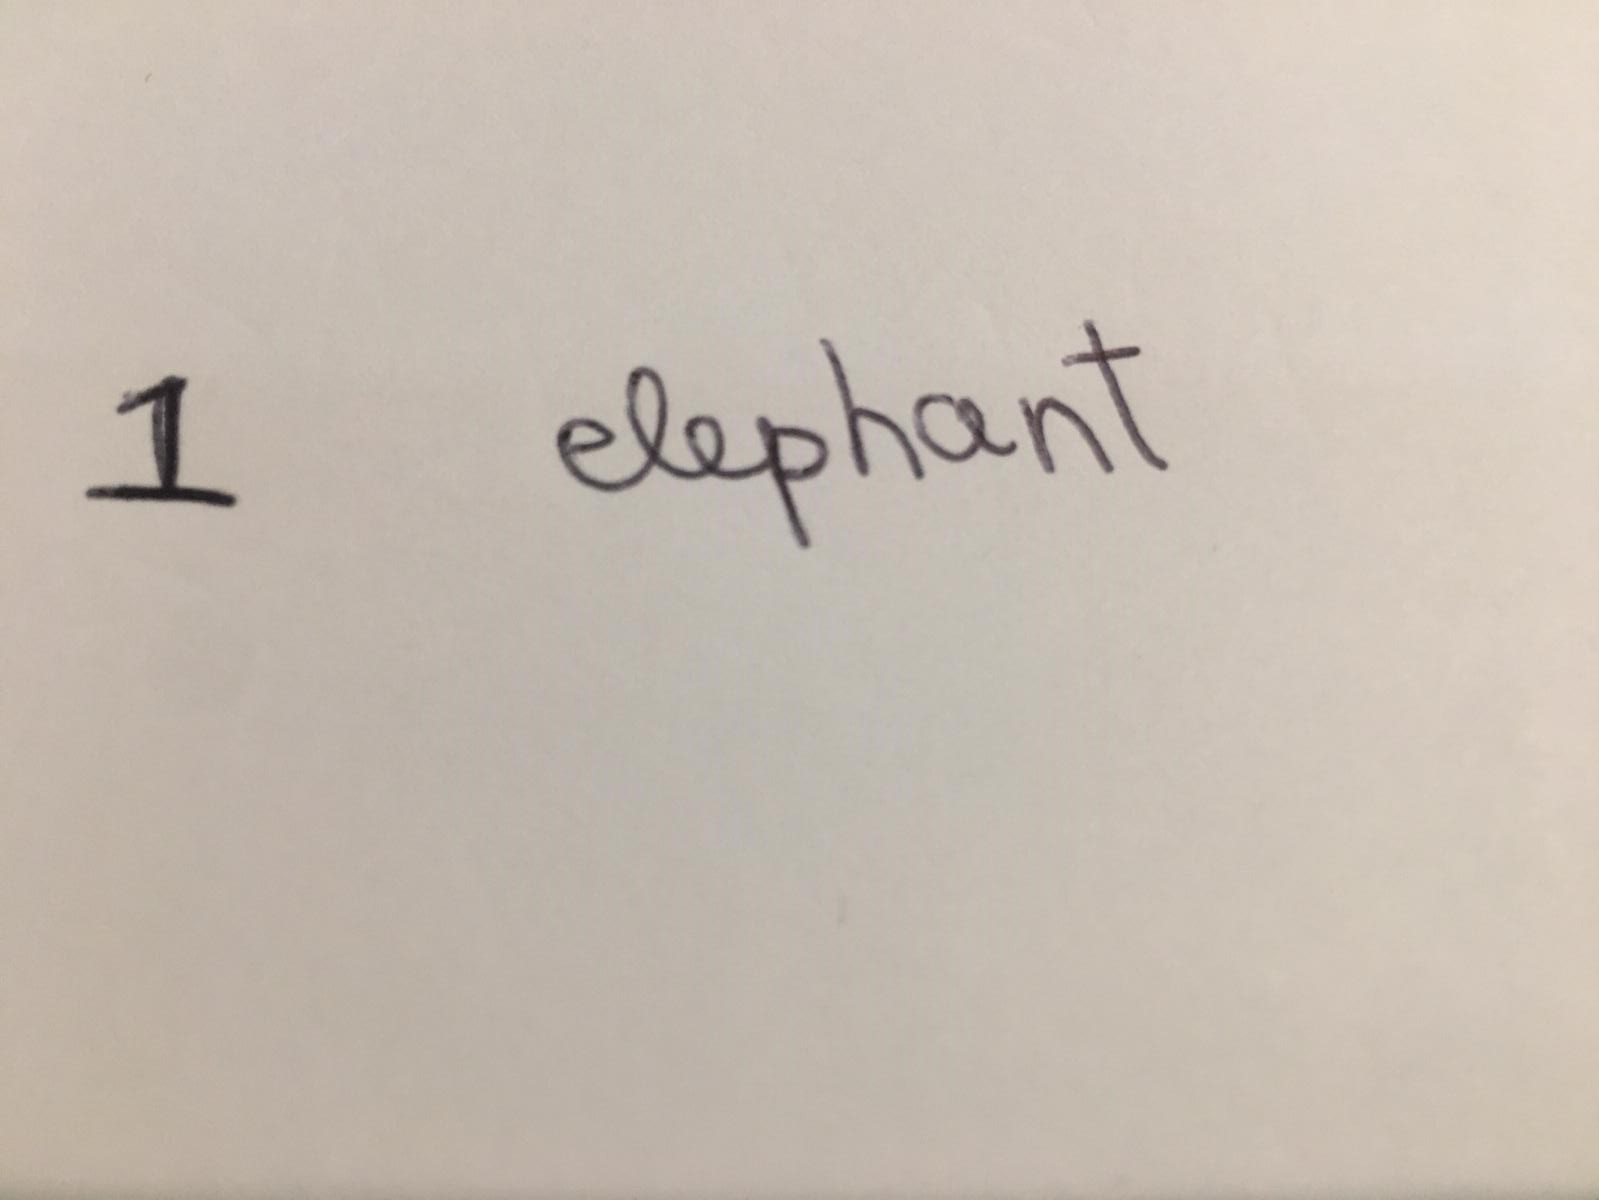 1 elephant